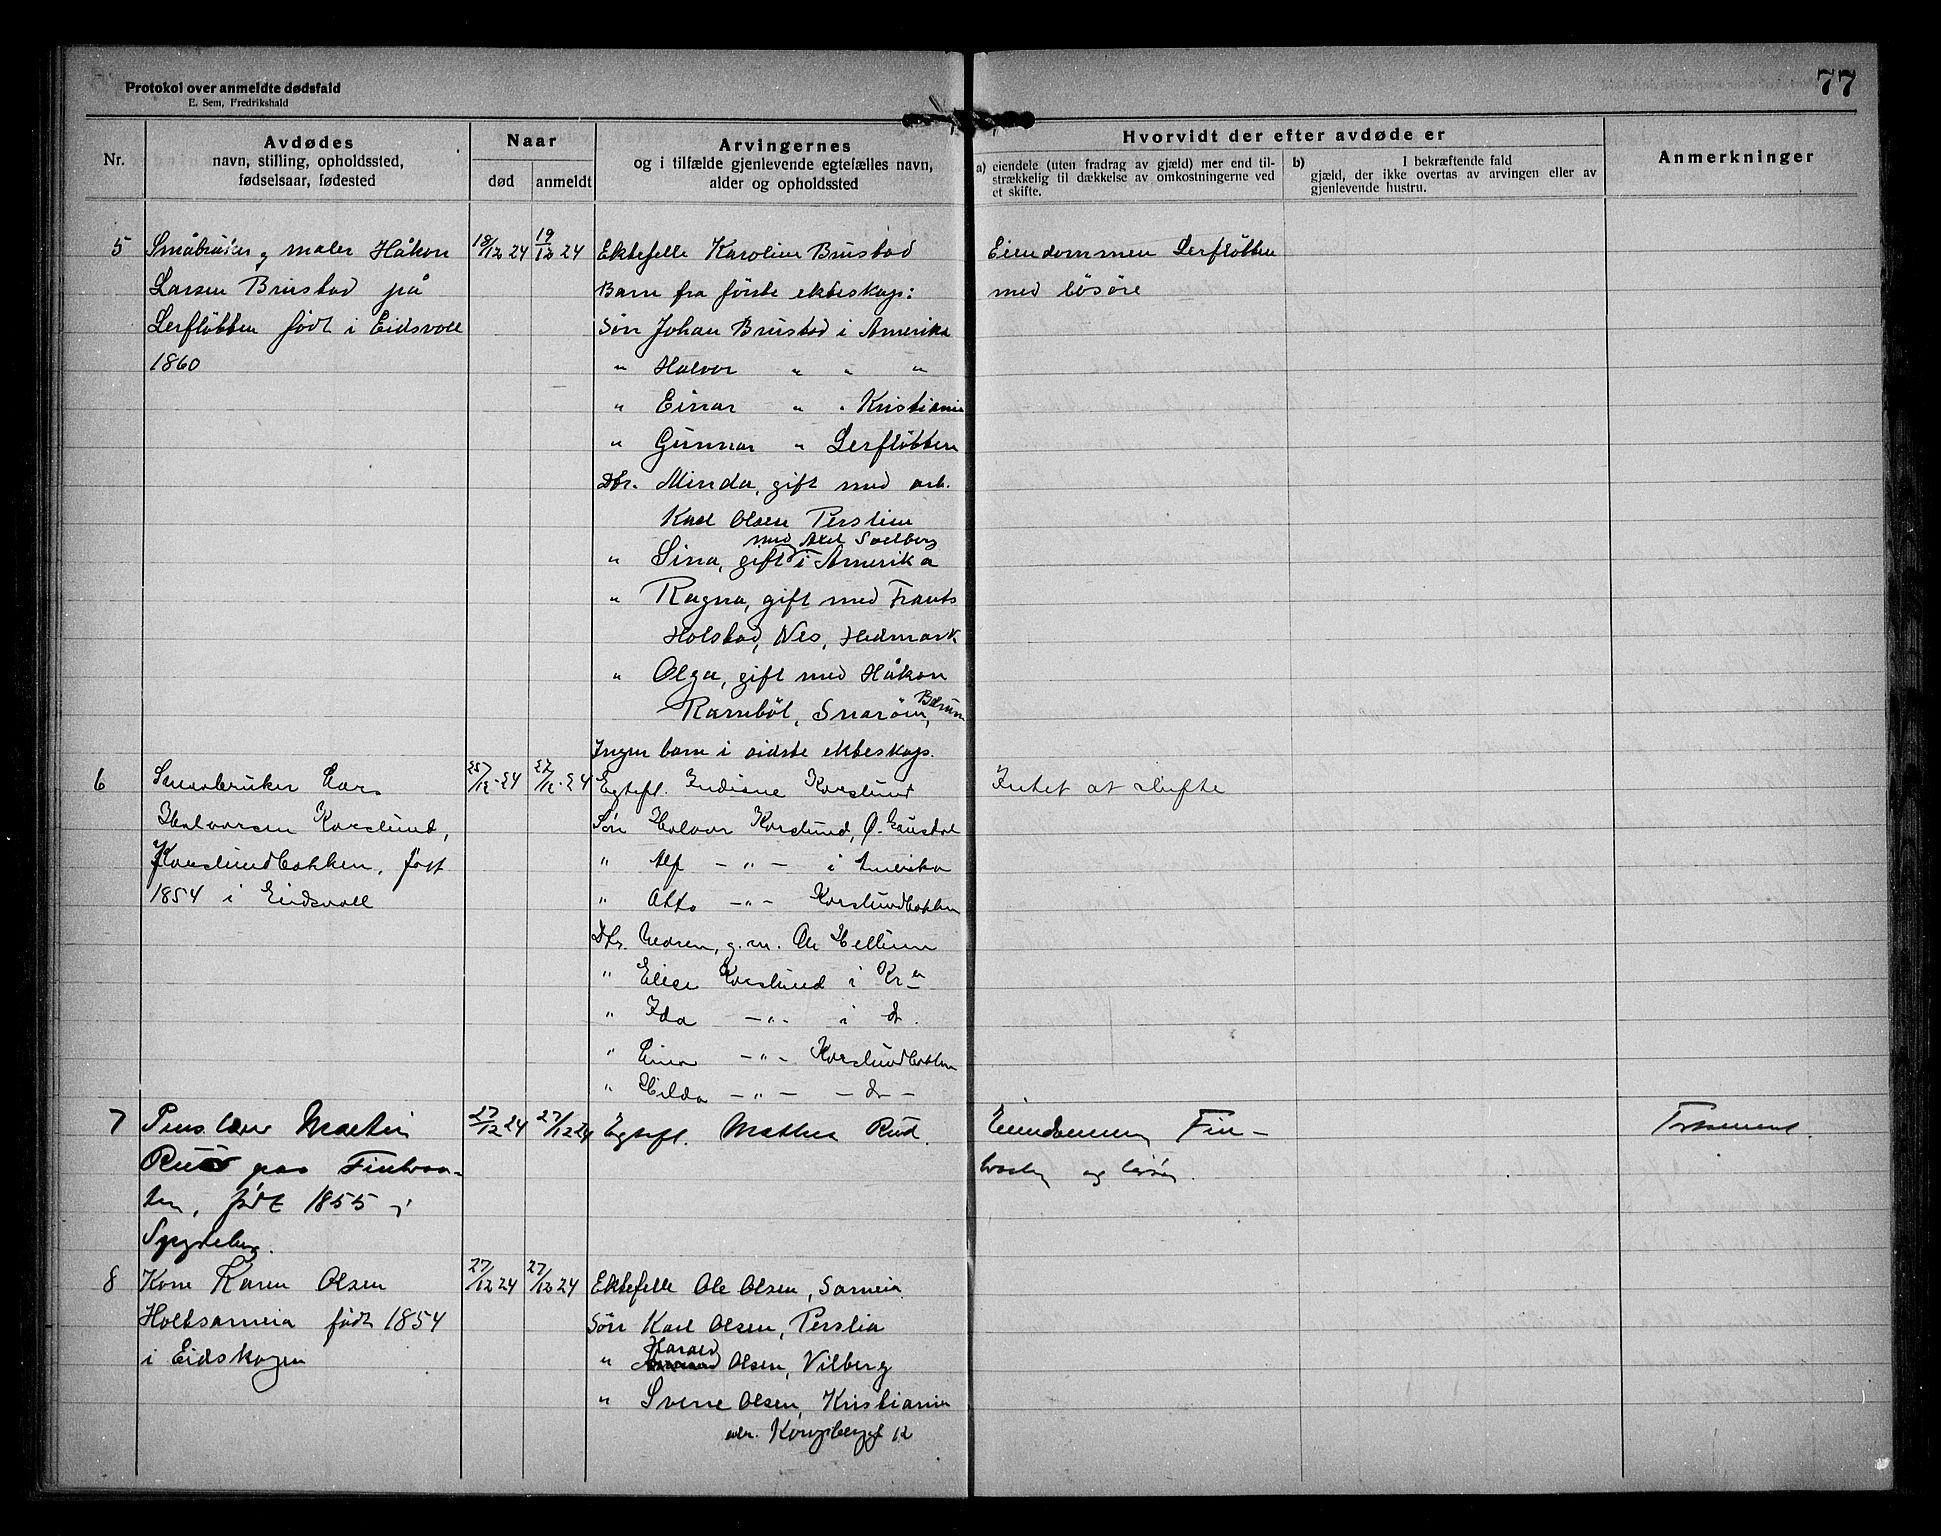 77
Protokol over anmeldte dødsfald
E. Sem, Fredrikshald
Nr.
Avdødes
navn, stilling, opholdssted,
fødselsaar, fødested
Naar
død
anmeldt
Arvingernes
og i tilfælde gjenlevende egtefælles navn,
alder og opholdssted
Hvorvidt der efter avdøde er
a) eiendele (uten fradrag av gjæld) mer end til-
strækkelig til dækkelse av omkostningerne ved
et skifte.
b) I bekræftende fald
gjæld, der ikke overtas av arvingen eller av
gjenlevende hustru.
Anmerkninger
5
Småbruker og maler Håkon
Larsen Brustad på
Lerfløtten født i Eidsvoll
1860
18/12 24
19/12 24
Ektefelle Karoline Brustad
Barn fra første ekteskap:
Søn Johan Brustad i Amerika
" Halvor " " "
" Einar " " Kristiania
" Gunnar " Lerfløtten
Dtr. Minda, gift med arb.
Karl Olsen Perslien
med Axel Solberg
" Lina, gift i Amerika
" Ragna, gift med Frants
Holstad, Nes, Hedmark
" Olga, gift med Håkon
Snarøen, Bærum
Ingen barn i sidste ekteskap.
Eiendommen Lerfløtten
med løsøre
6
Smaabruker Lars
Halvorsen Korslund,
Korslundbakken, født
1854 i Eidsvoll
25/12-24
27/12-24
Egtef. Korslund
Søn Halvor Korslund, Ø.
" Alf - " - i Amerika
" Otto - " - Korslundbakken
Dtr. g. m. Ole
" Elise Korslund i Kra
" Ida - " - i d.
" Lina - " - Korslundbakken
" Hilda - " - - d -
Intet at skifte
7
Pens. Martin
Ruud paa Finbraa-
ten, født 1855 i
Spydeberg.
27/12 24
27/12 24
Egtef. Mathea Rud.
Eiendommen Fin-
braaten og løsøre.
Testament.
8
Kone Karen Olsen
Holtsarneia født 1854
i Eidskogen
27/12 24
27/12 24
Ektefelle Ole Olsen, Sarneia
Søn Karl Olsen, Perslia
" Harald Olsen, Vilberg
" Sverre Olsen, Kristiania
adr. Kongsberggt 12